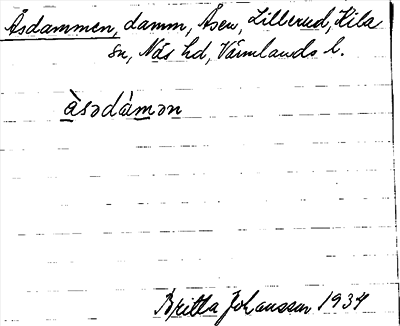 Åsdammen, damm, Åsen, Lillerud, Kila
sn, Näs hd, Värmlands l.
àsədàmən
Britta Johansson 1934